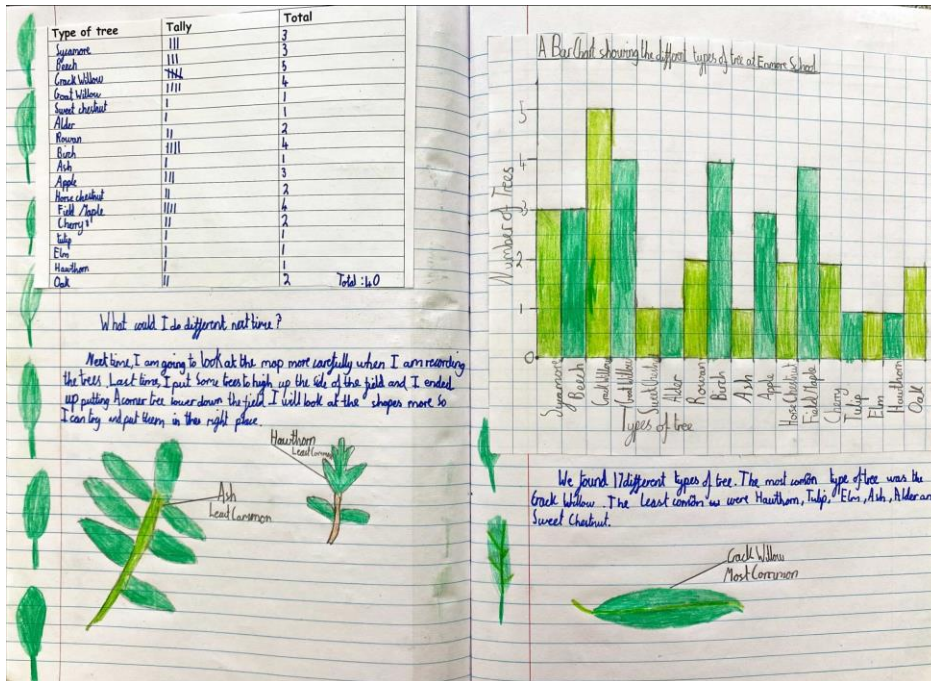 Type of tree Tally Total
Sycamore III 3
Beech III 3
Crack Willow IIII 5
Goat Willow IIII 4
Sweet chestnut I 1
Alder I 1
Rowan II 2
Birch IIII 4
Ash I 1
Apple III 3
Horse chestnut II 2
Field Maple IIII 4
Cherry II 2
tulip I 1
Elm I 1
Hawthorn I 1
Oak II 2 Total: 40
What could I do different next time?
Next time, I am going to look at the map more carefully when I am recording
the trees. Last time, I put some trees to high up the side of the field and I ended
up putting A corner tree lower down the field. I will look at the shapes more so
I can try and put them in the right place.
Hawthorn
Least Common
Ash
Least Common
A Bar Chart showing the different types of tree at School
Number of Trees
5
4
3
2
1
0
Sycamore
Beech
Crack Willow
Goat Willow
Sweet Chestnut
Alder
Rowan
Birch
Ash
Apple
Horse Chestnut
Field Maple
Cherry
Tulip
Elm
Hawthorn
Oak
Types of tree
We found 17 different types of tree. The most comon type of tree was the
Crack Willow. The least comon were Hawthorn, Tulip, Elm, Ash, Alder and
Sweet Chestnut.
Crack Willow
Most Common